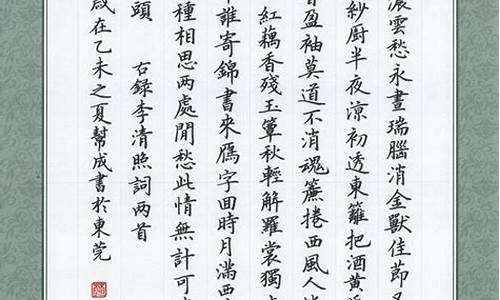 濃雲愁永晝瑞腦消金獸佳節又
紗廚半夜涼初透東籬把酒黃
盈袖莫道不消魂簾捲西風人
紅藕香殘玉簟秋輕解羅裳獨
誰寄錦書來鴈字回時月滿西
種相思两處閒愁此情無計可
頭 右録李清照詞两首
歲在乙未之夏幫成書於東莞